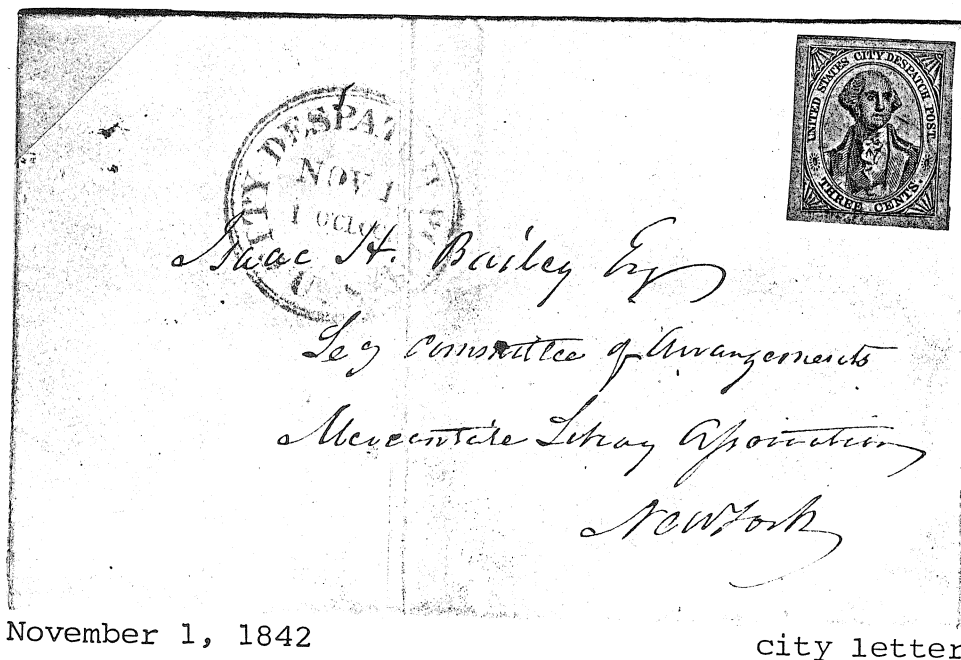 UNITED STATES CITY DESPATCH POST.
THREE CENTS.
CITY DESPATCH
NOV 1
1 O'CLOCK
U.S
Isaac H. Bailey Esq
Secy Committee of Arrangements
Mercantile Library Association
New York
November 1, 1842
city letter